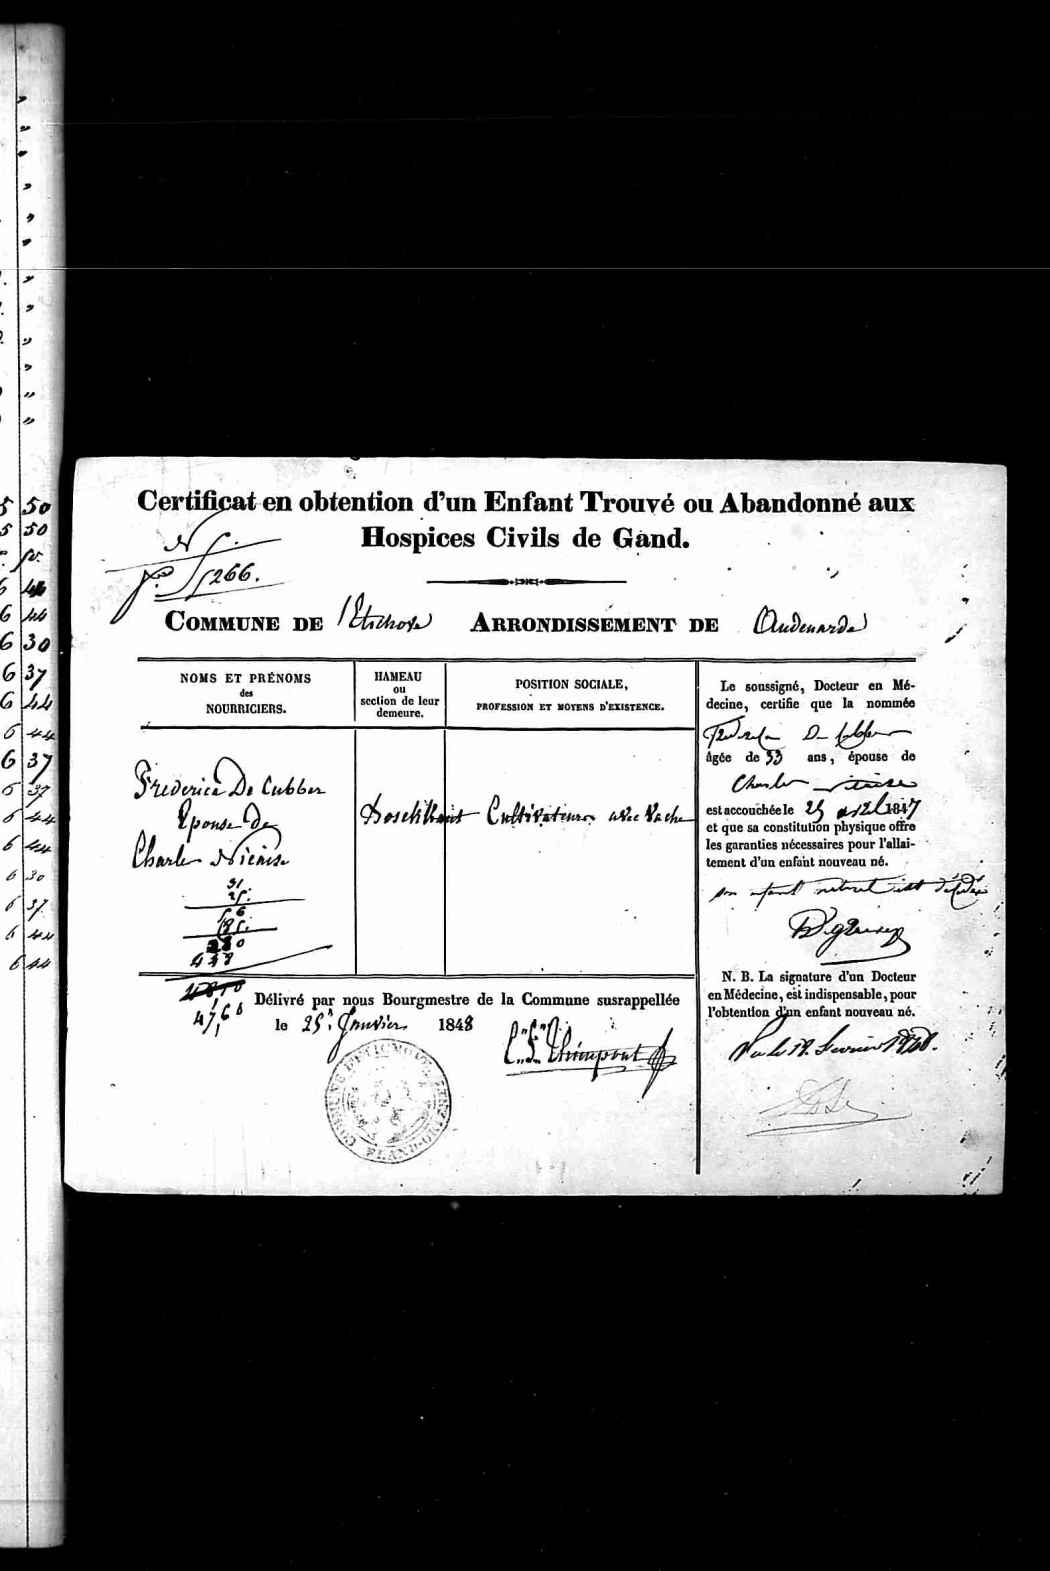 Certificat en obtention d'un Enfant Trouvé ou Abandonné aux
Hospices Civils de Gand.
266.
COMMUNE DE Etichove ARRONDISSEMENT DE Audenarde
NOMS ET PRÉNOMS
des
NOURRICIERS.
HAMEAU
ou
section de leur
demeure.
POSITION SOCIALE,
PROFESSION ET MOYENS D'EXISTENCE.
Frederica De Cubber
Epouse De
Charles Nicaise
Cultivateurs avec Vache
31.
25.
56
280
448
47,66
Délivré par nous Bourgmestre de la Commune susrappellée
le 25 Janvier 1848
COMMUNE D'ETICHOVE
FLAND-ORIENT
Le soussigné, Docteur en Mé-
decine, certifie que la nommée
Frederica De Cubber
âgée de 33 ans, épouse de
Charles Nicaise
est accouchée le 25 1847
et que sa constitution physique offre
les garanties nécessaires pour l'allai-
tement d'un enfant nouveau né.
son enfant est
N. B. La signature d'un Docteur
en Médecine, est indispensable, pour
l'obtention d'un enfant nouveau né.
Vu le Fevrier 1848.
50
50
44
30
37
44
44
37
37
44
44
30
37
44
44